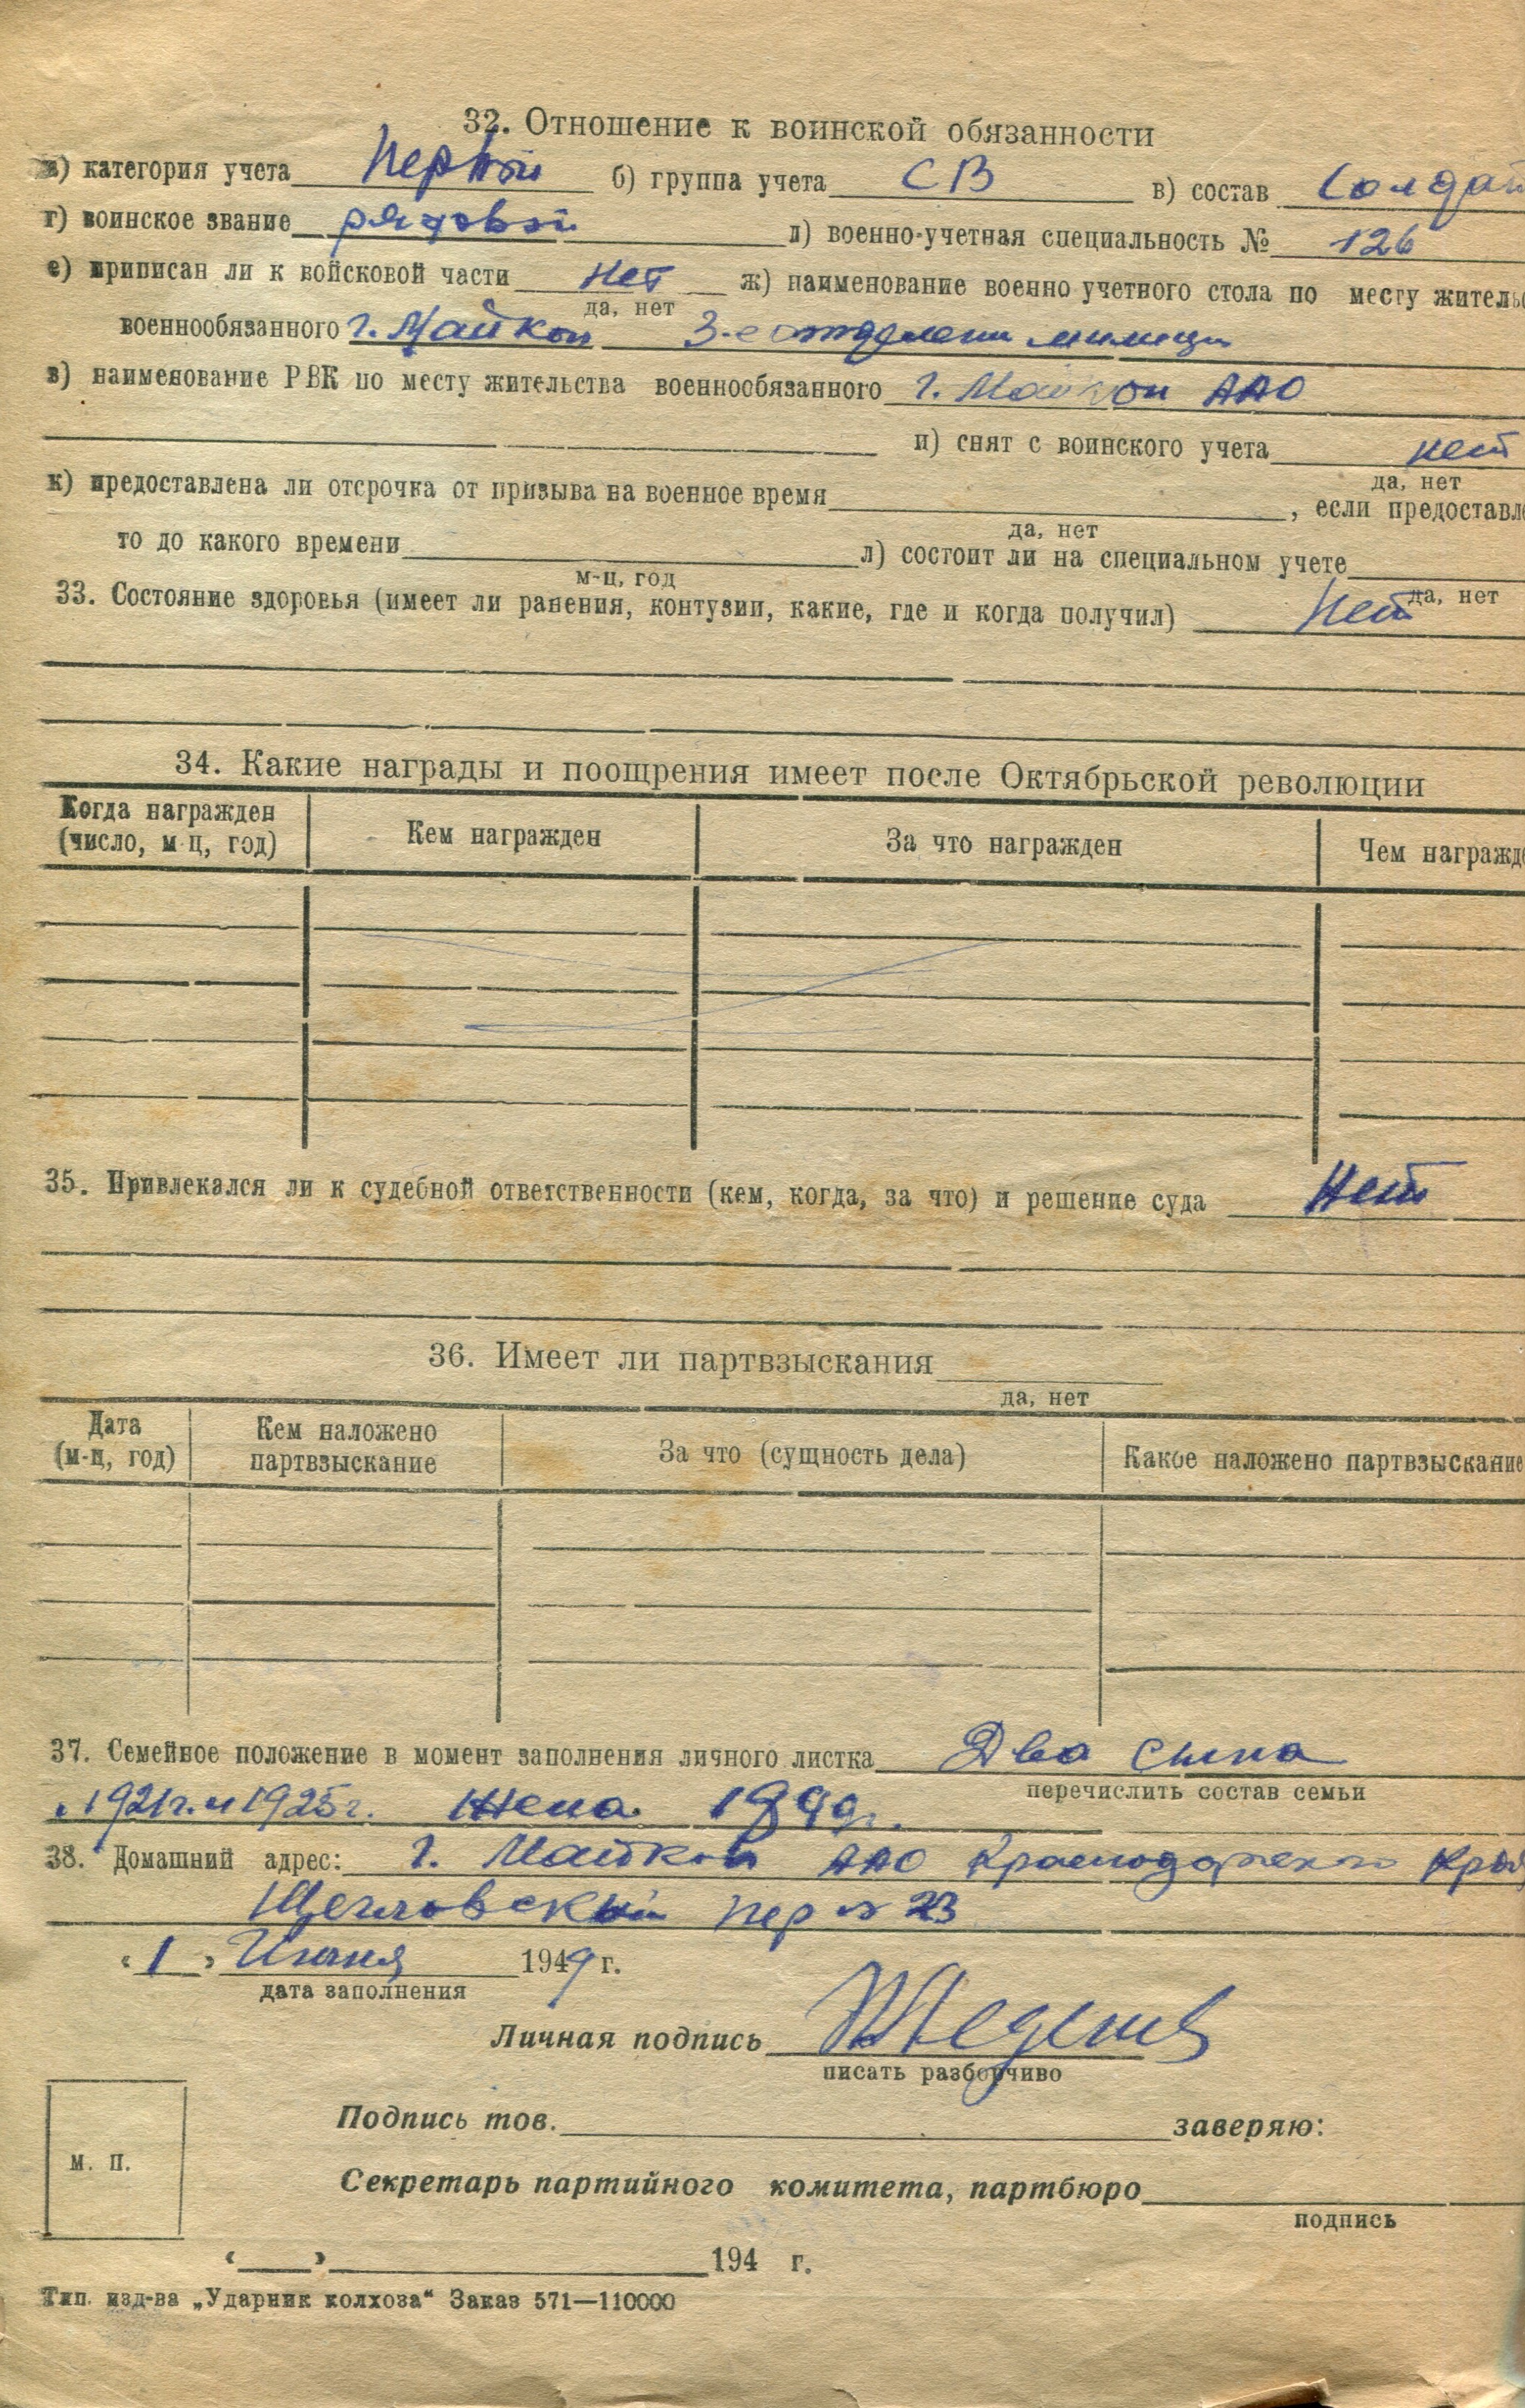 32. Отношение к воинской обязанности
а) категория учета Первой б) группа учета СВ в) состав Солдат
г) воинское звание рядовой д) военно-учетная специальность № 126
е) приписан ли к войсковой части нет ж) наименование военно учетного стола по месту жительс
да, нет
военнообязанного г. Майкоп 3-е отделени милиции
з) наименование РВК по месту жительства военнообязанного г. Майкоп ААО
и) снят с воинского учета нет
да, нет
к) предоставлена ли отсрочка от призыва на военное время , если предоставле
да, нет
то до какого времени л) состоит ли на специальном учете
м-ц, год да, нет
33. Состояние здоровья (имеет ли ранения, контузии, какие, где и когда получил) Нет
34. Какие награды и поощрения имеет после Октябрьской революции
Когда награжден (число, м-ц, год) Кем награжден За что награжден Чем награжде
35. Привлекался ли к судебной ответственности (кем, когда, за что) и решение суда Нет
36. Имеет ли партвзыскания
да, нет
Дата (м-ц, год) Кем наложено партвзыскание За что (сущность дела) Какое наложено партвзыскание
37. Семейное положение в момент заполнения личного листка Два сына
перечислить состав семьи
1921г. и 1925г. Жена 1899г.
38. Домашний адрес: г. Майкоп ААО Краснодарского Края
Щегловский пер № 23
«1» Июня 1949 г.
дата заполнения
Личная подпись
писать разборчиво
Подпись тов. заверяю:
м. п.
Секретарь партийного комитета, партбюро
подпись
« » 194 г.
Тип. изд-ва „Ударник колхоза“ Заказ 571—110000